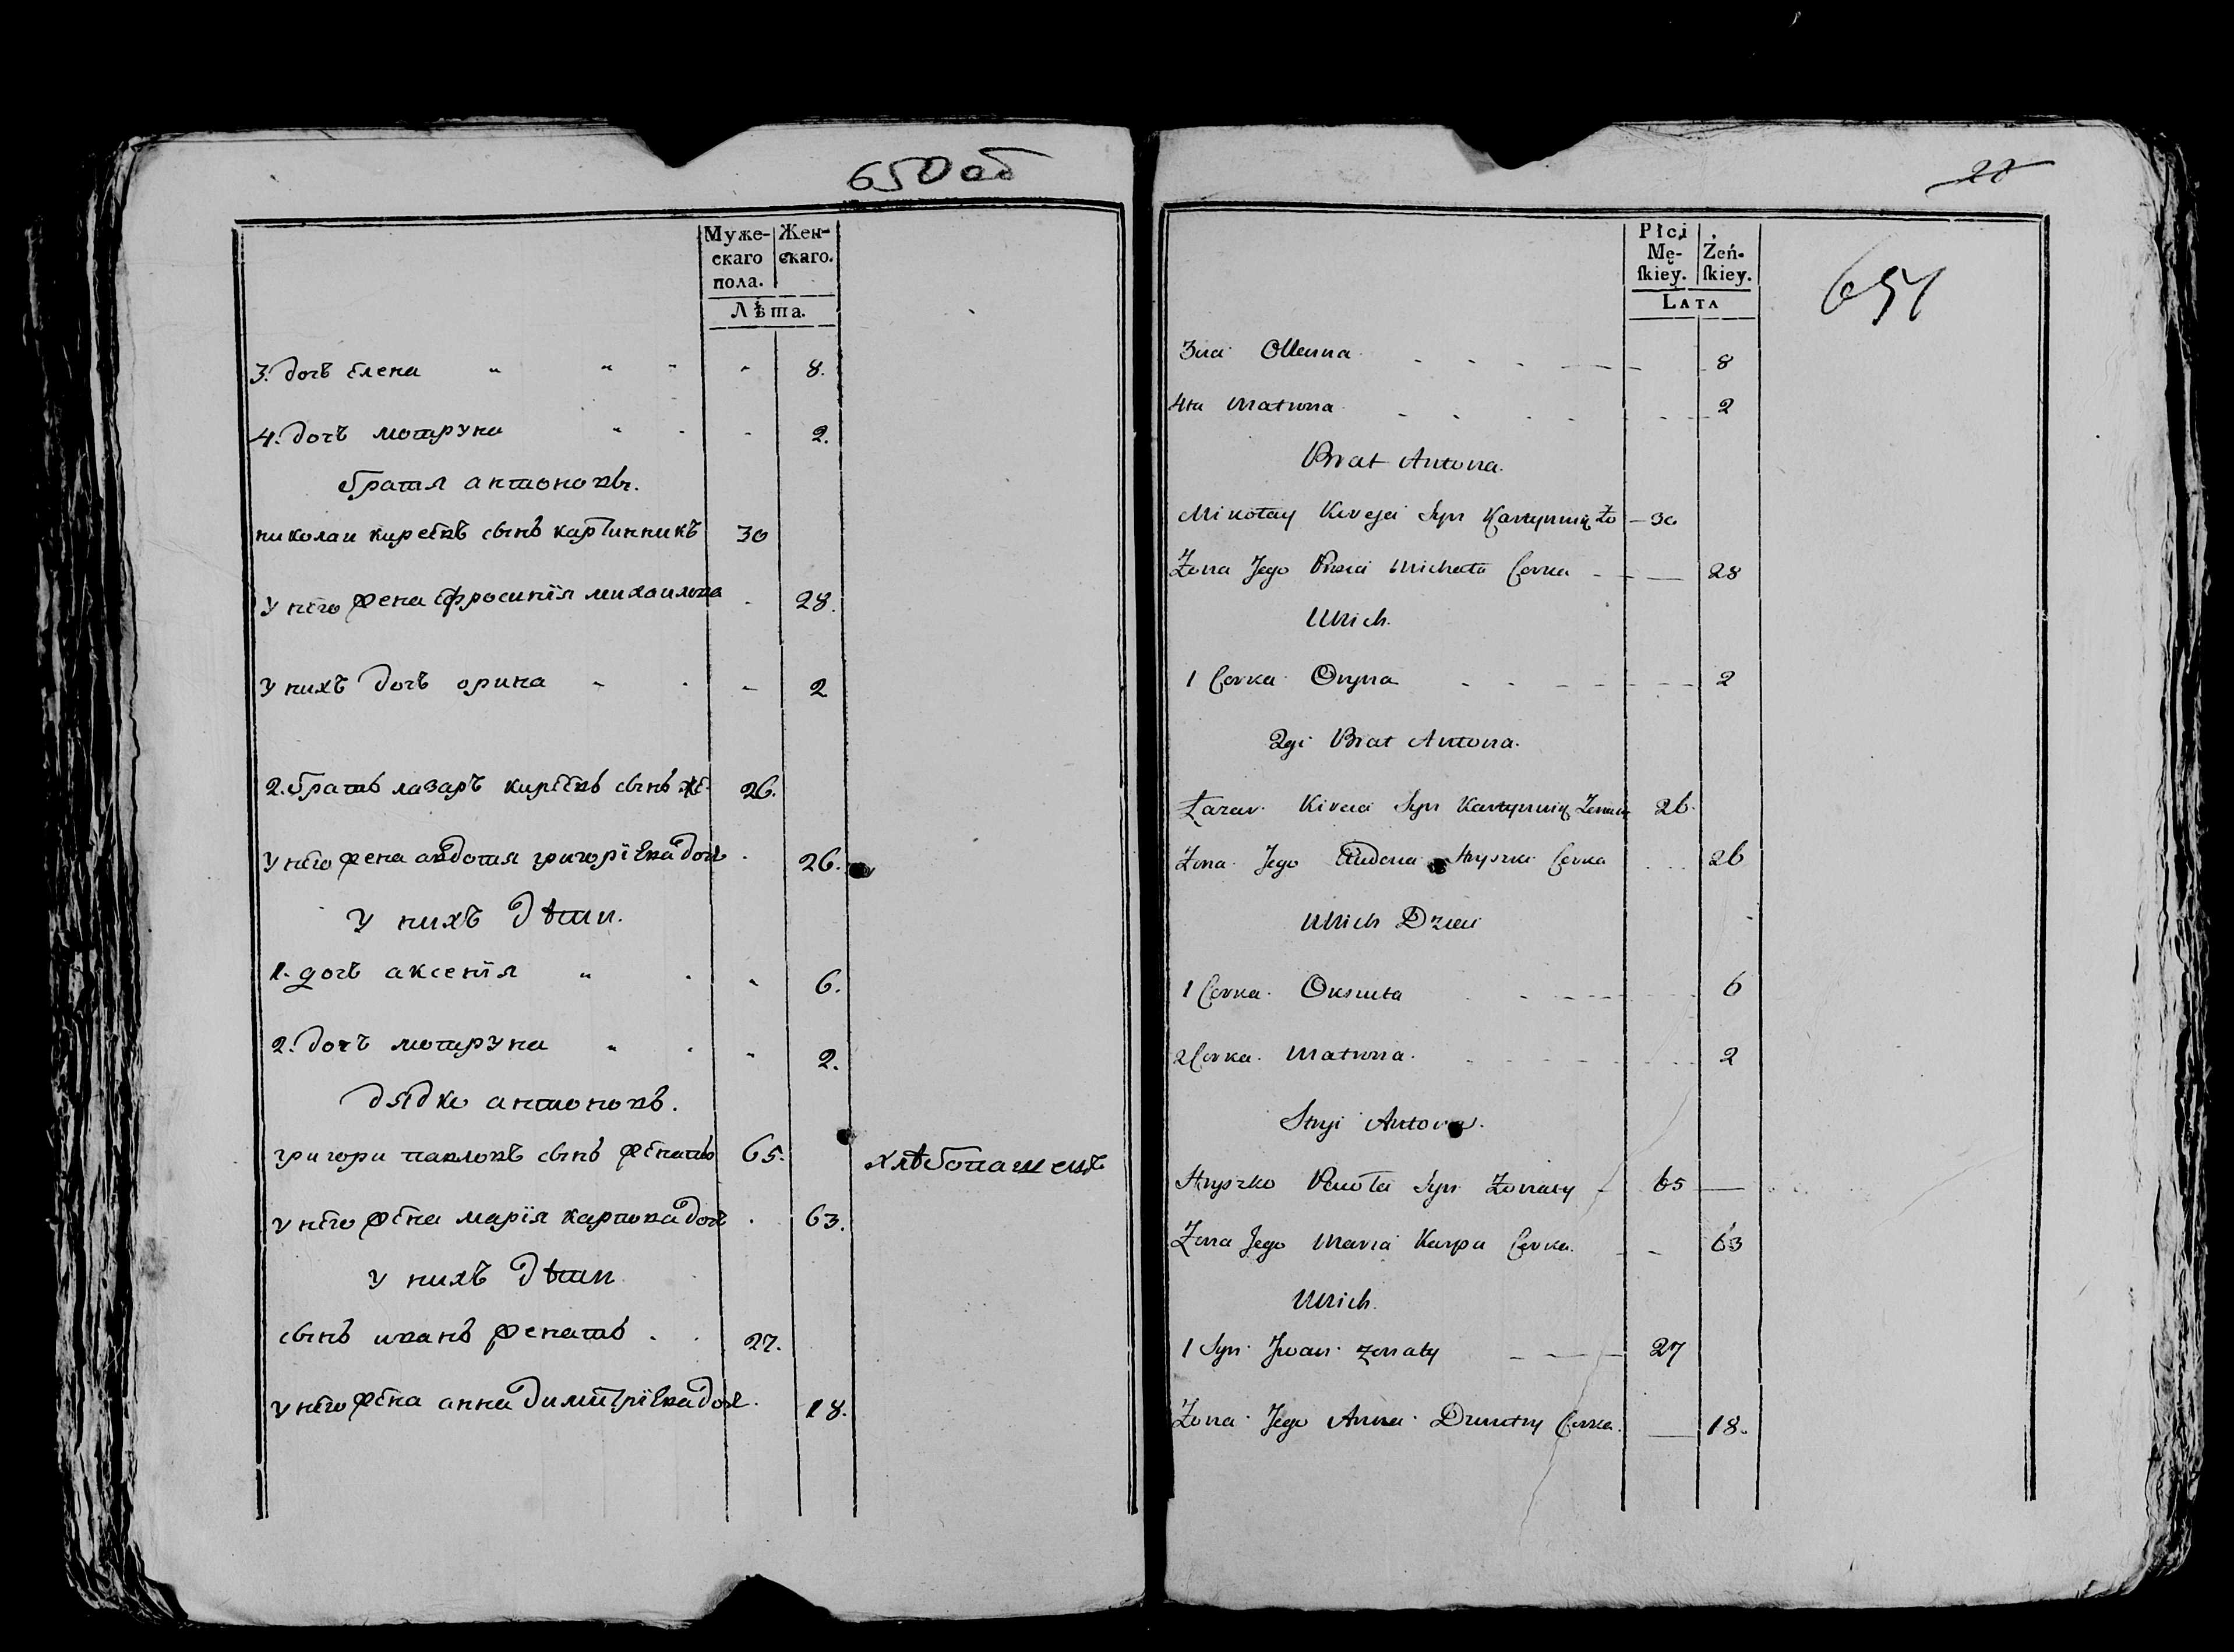 650 об
Муже-
скаго
пола.
Жен-
скаго.
Лѣта.
3. дочъ елена 8.
4. дочъ мотруна 2.
братя антоновы.
николаи киреевъ сынъ картинникъ 30
у него жена ефросинїя михаилова 28.
у нихъ дочъ орина 2
2. братъ лазаръ киреевъ сынъ же. 26.
у него жена авдотя григорїева дочъ 26.
у нихъ дѣти.
1. дочъ аксенїя 6.
2. дочъ мотруна 2.
дядко антоновъ.
григори павловъ сынъ женатъ 65. хлѣбопашецъ
у него жена марїя карпова дочъ 63.
у нихъ дѣти
сынъ иванъ женатъ 27.
у него жена анна димитрїева доч. 18.
28
651
Płci
Mę-
ſkiey.
Żeń-
ſkiey.
LATA
3cia Ollenna 8
4ta Matrona 2
Brat Antona.
Mikołay Kireja Syn 30
Żona Jego Michała Corka 28
Unich.
1 Corka Oryna 2
2gi Brat Antona.
Łazar Kireia Syn 26.
Żona Jego Hryszki Corka 26
Unich Dzieci
1 Corka 6
2 Corka Matrona 2
Stryi Antona.
Hryszko Pawła Syn Żonaty 65
Żona Jego Maria Karpa Corka. 63
Unich.
1 Syn Jwan żonaty 27
Żona Jego Anna Dmitry Corka. 18.